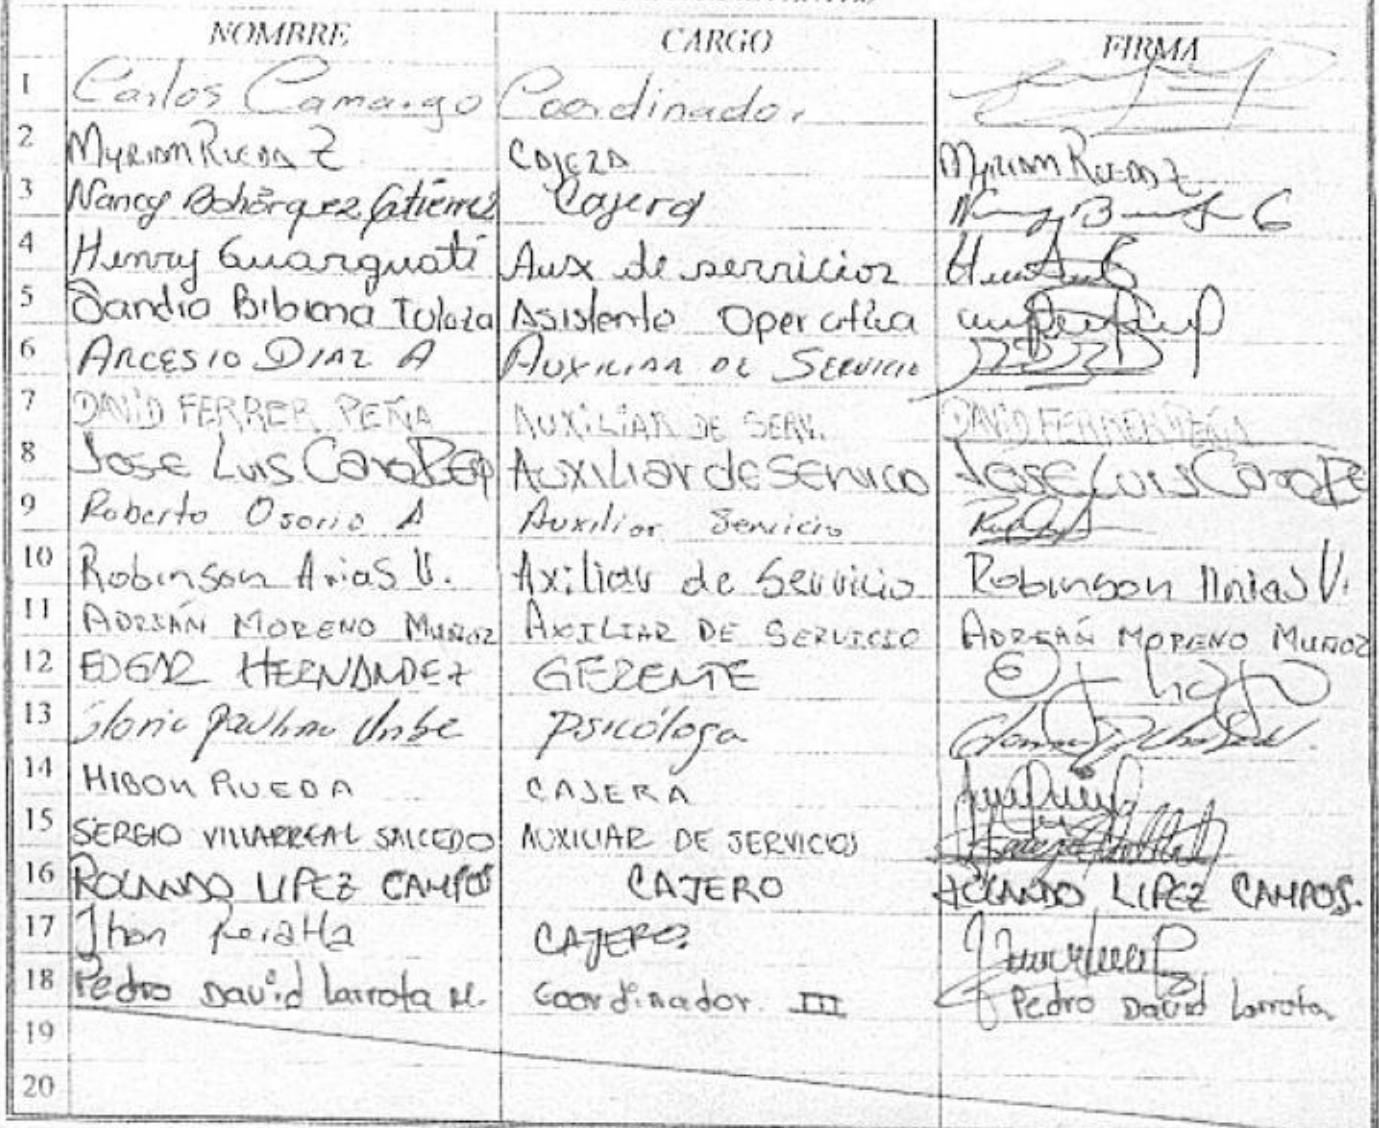 NOMBRE CARGO FIRMA
1 Carlos Camargo Coordinador
2 Myriam Rueda Z CAJERA Myriam Rueda Z
3 Nancy Bohórquez Gutiérrez Cajera
4 Henry Guarguati Aux de servicios
5 Sandra Bibiana Toloza Asistente Operativa
6 ARCESIO DIAZ A AUXILIAR DE SERVICIO
7 DAVID FERRER PEÑA AUXILIAR DE SERV. DAVID FERRER PEÑA
8 JOSE LUIS AUXILIAR de SERVICO JOSE LUIS
9 Roberto Osorio A Auxiliar Servicio
10 Robinson Arias V. Axiliar de Servicio Robinson Arias V.
11 ADRIÁN MORENO MUÑOZ AXILIAR DE SERVICIO ADRIÁN MORENO MUÑOZ
12 EDGAR HERNANDEZ GERENTE
13 Gloria Paulina Uribe Psicóloga
14 RUEDA CAJERA
15 SERGIO VILLARREAL SALCEDO AUXILIAR DE SERVICIOS
16 ROLANDO LIPEZ CAMPOS CAJERO ROLANDO LIPEZ CAMPOS.
17 Jhon Peralta CAJERO
18 Pedro David Larrota M. Coordinador III Pedro David Larrota
19
20